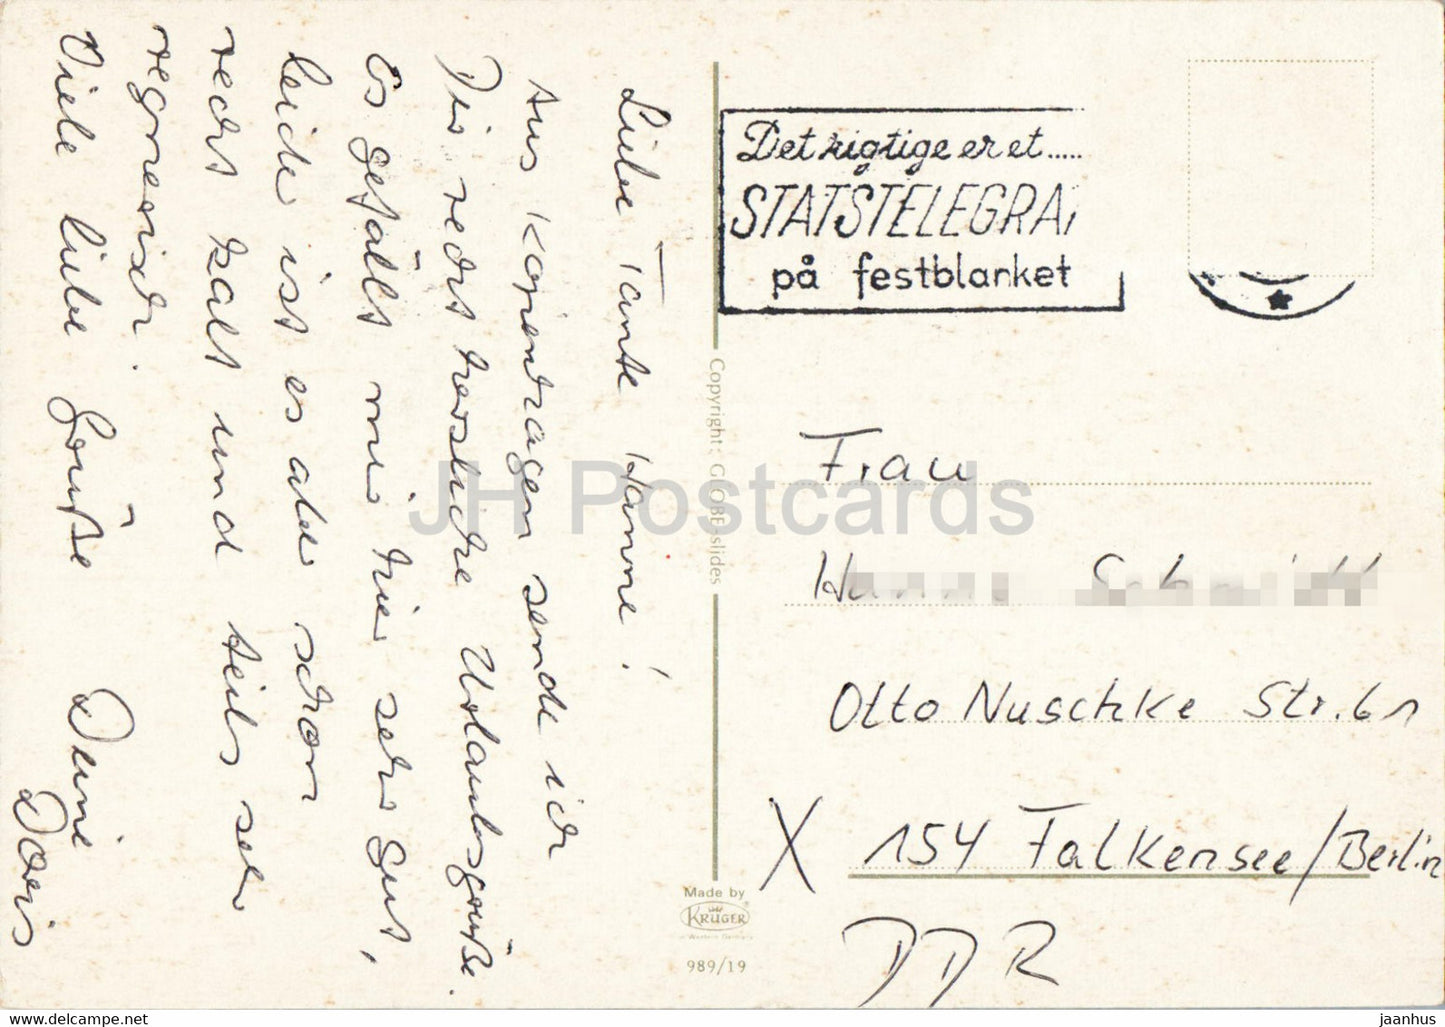 Liebe Tante Hanne!
Aus Kopendragen sende ich
Dir recht herzliche Urlaubsgrüße.
Es gefällt mir hier sehr gut,
leider ist es aber schon
recht kalt und teils sehr
regnerisch.
Viele liebe Grüße
Deine
Doris
Det rigtige er et.....
STATSTELEGRA
på festblanket
Copyright: GLOBE-slides
Made by
KRÜGER
989/19
Frau
Otto Nuschke Str. 61
X 154 Falkensee/Berlin
DDR
JH Postcards
www.delcampe.net
jaanhus